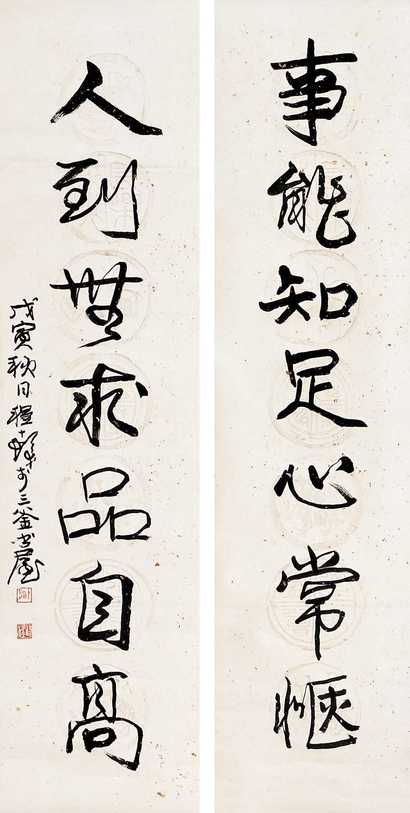 事能知足心常惬
人到無求品自高
戊寅秋日程十发于三釜书屋